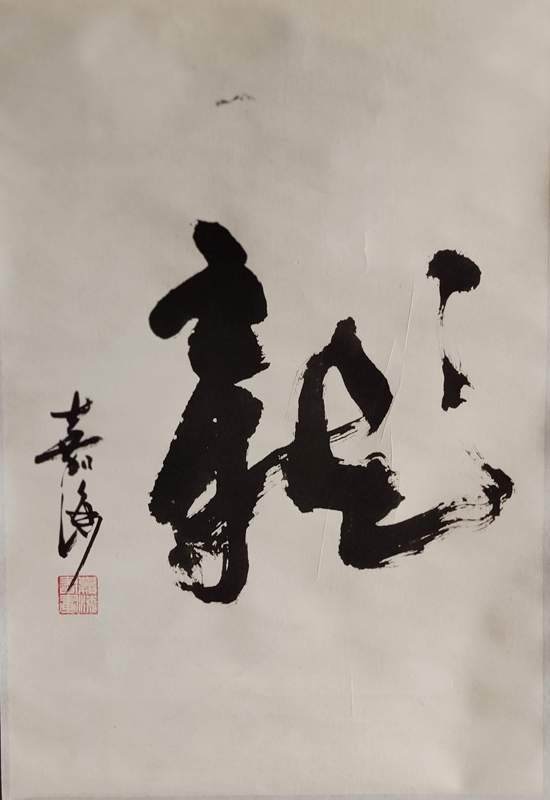 龍
嘉海